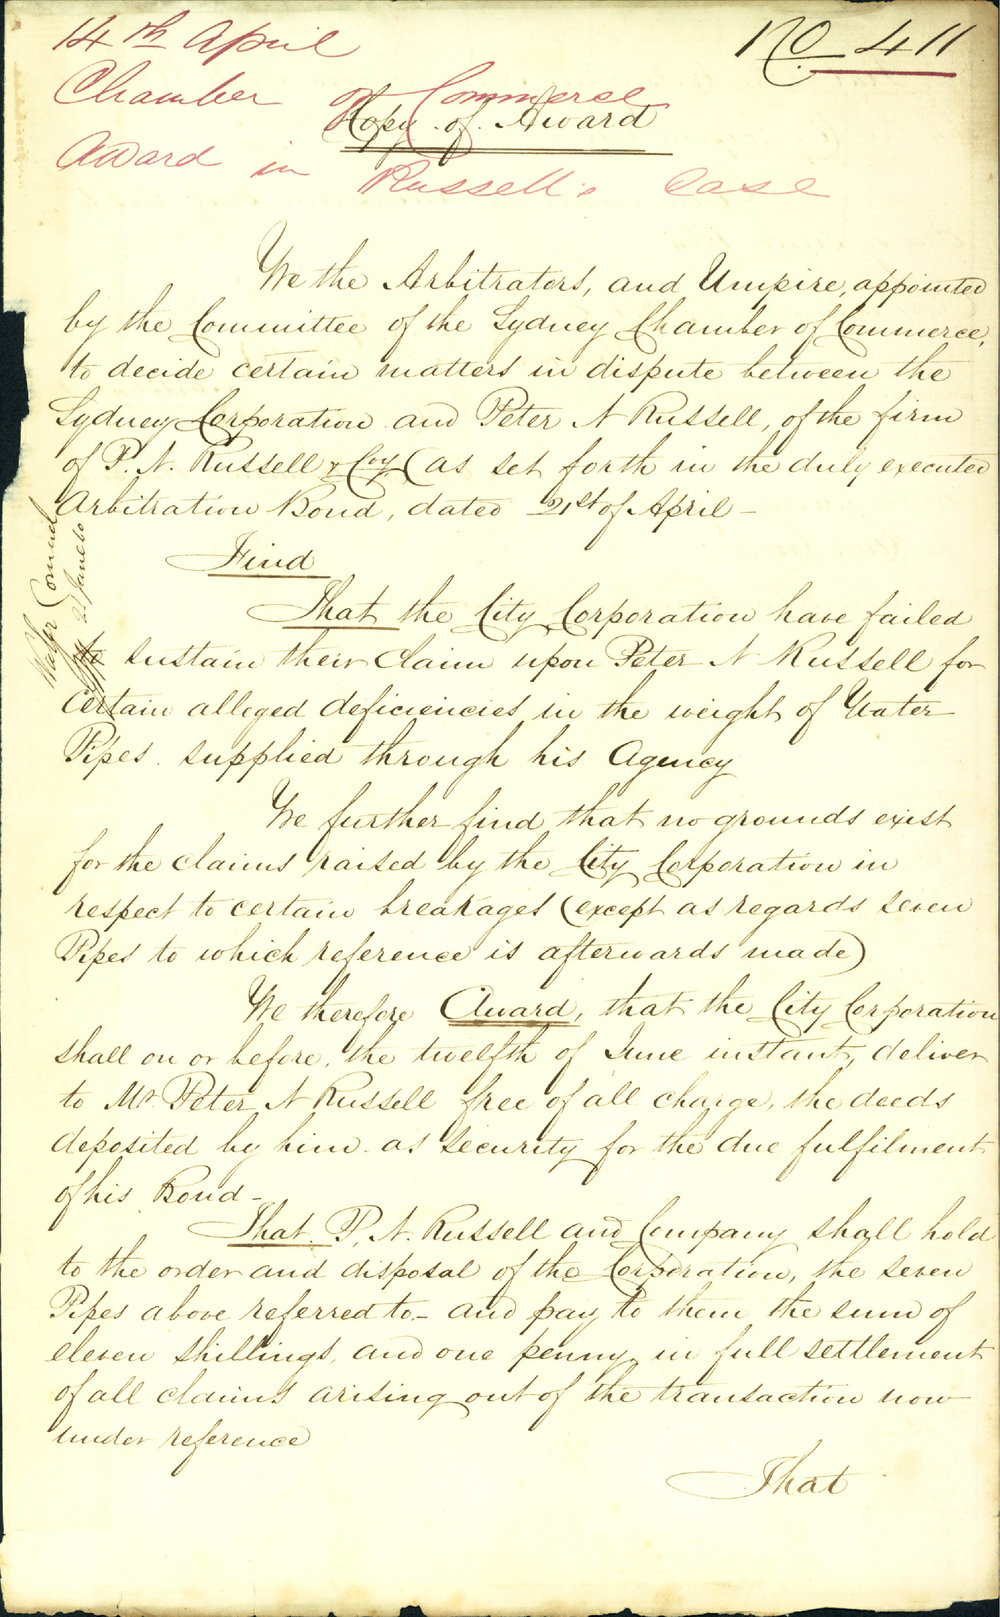 14th April
No 411
Chamber of Commerce
Copy of Award
Award in Russell's Case
We the Arbitrators, and Umpire, appointed
by the Committee of the Sydney Chamber of Commerce,
to decide certain matters in dispute between the
Sydney Corporation and Peter N Russell, of the firm
of P. N. Russell & Coy (as set forth in the duly executed
Arbitration Bond, dated 21st of April -
Find
That the City Corporation have failed
to sustain their Claim upon Peter N Russell for
Certain alleged deficiencies in the weight of Water
Pipes supplied through his Agency
We further find that no grounds exist
for the claims raised by the City Corporation in
respect to certain breakages (except as regards seven
Pipes to which reference is afterwards made)
We therefore Award, that the City Corporation
shall on or before, the twelfth of June instant, deliver
to Mr Peter N Russell free of all charge, the deeds
deposited by him as security for the due fulfilment
of his Bond -
That P. N. Russell and Company shall hold
to the order and disposal of the Corporation, the seven
Pipes above referred to - and pay to them the sum of
eleven shillings, and one penny in full settlement
of all claims arising out of the transaction now
under reference
That